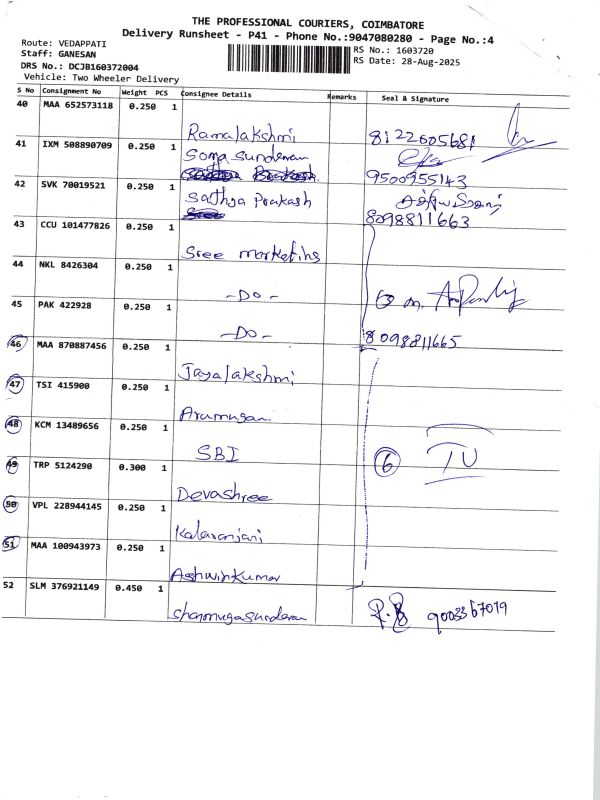 THE PROFESSIONAL COURIERS, COIMBATORE
Delivery Runsheet - P41 - Phone No.:9047080280 - Page No.:4
Route: VEDAPPATI
Staff: GANESAN
DRS No.: DCJB160372004
Vehicle: Two Wheeler Delivery
RS No.: 1603720
RS Date: 28-Aug-2025
S No Consignment No Weight PCS Consignee Details Remarks Seal & Signature
40 MAA 652573118 0.250 1
Ramalakshmi 8122605681
41 IXM 508890709 0.250 1
Somasundaram
9500955143
42 SVK 70019521 0.250 1
Sathya Prakash
8098811663
43 CCU 101477826 0.250 1
Sree marketing
44 NKL 8426304 0.250 1
-DO-
45 PAK 422928 0.250 1
-DO- 8098811665
46 MAA 870887456 0.250 1
Jayalakshmi
47 TSI 415900 0.250 1
Arumugam
48 KCM 13489656 0.250 1
SBI 6
49 TRP 5124290 0.300 1
Devashree
50 VPL 228944145 0.250 1
Kalaranjani
51 MAA 100943973 0.250 1
Ashwinkumar
52 SLM 376921149 0.450 1
Shanmugasundaram 9003367079